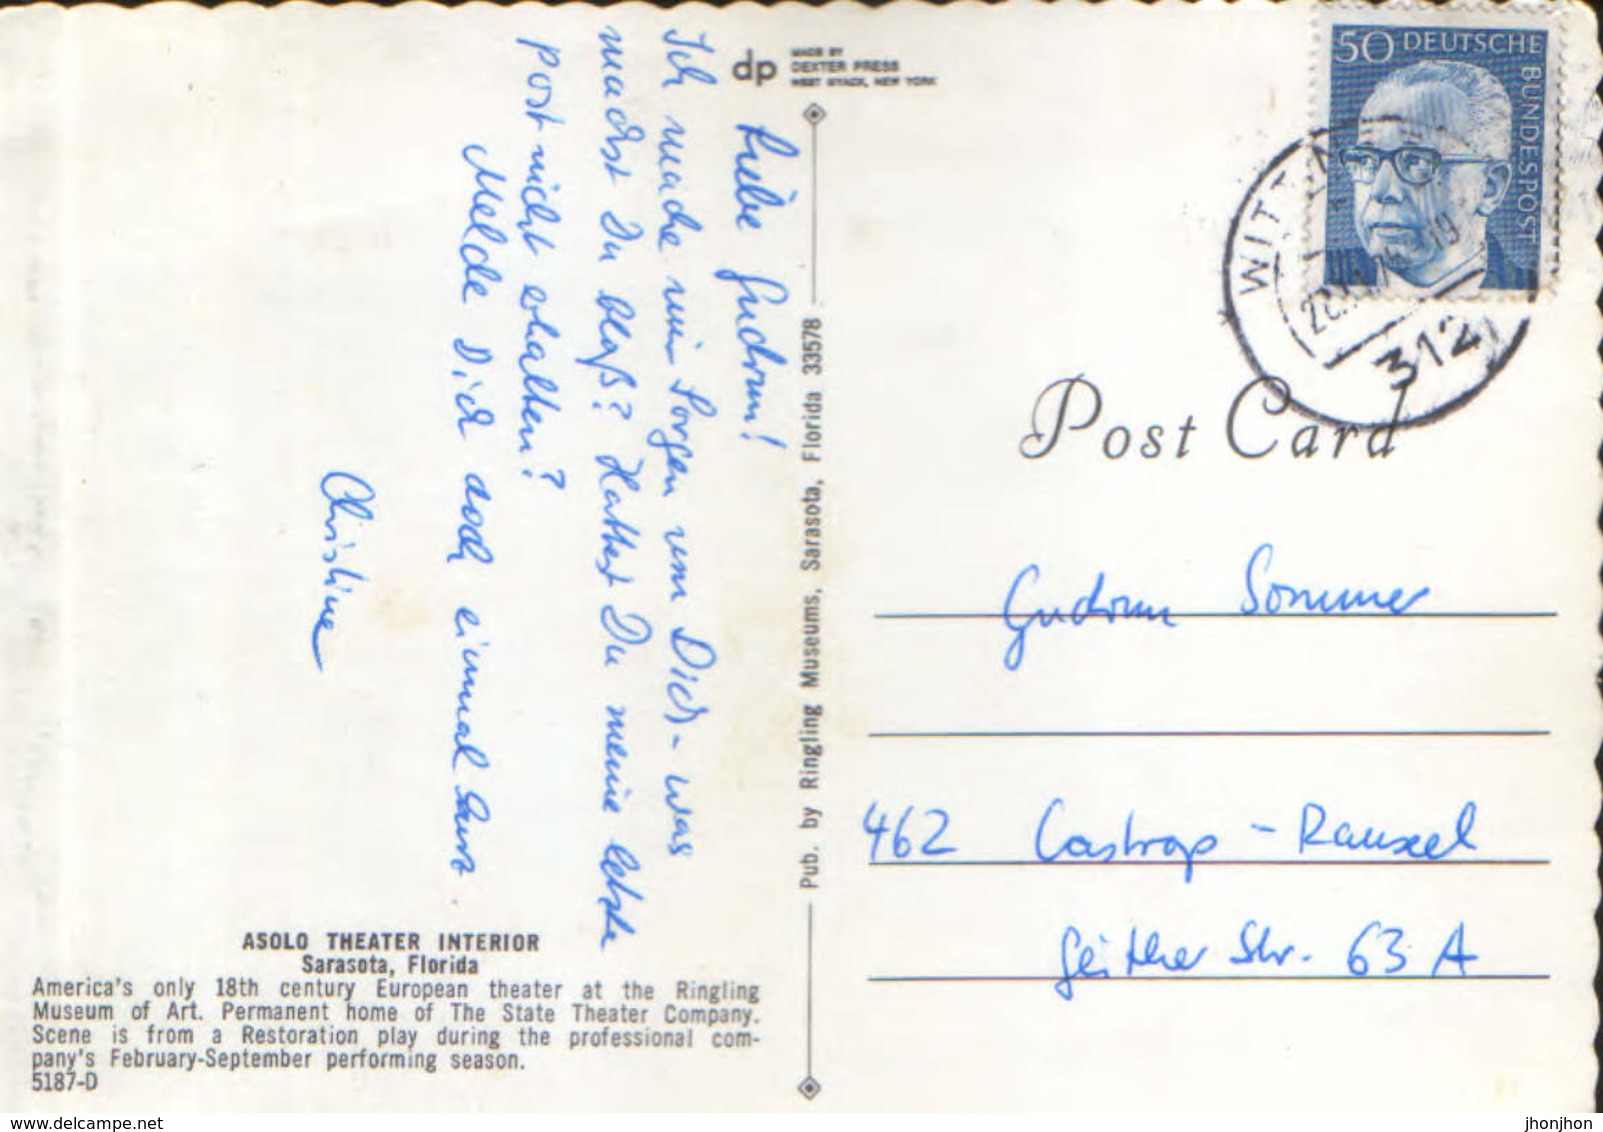 dp
MADE BY
DEXTER PRESS
WEST NYACK, NEW YORK
Liebe Gudrun!
Ich mache mir Sorgen um Dich - was
machst Du bloß? Hattest Du meine letzte
Post nicht erhalten?
Melde Dich doch einmal kurz.
Christine
ASOLO THEATER INTERIOR
Sarasota, Florida
America's only 18th century European theater at the Ringling
Museum of Art. Permanent home of The State Theater Company.
Scene is from a Restoration play during the professional com-
pany's February-September performing season.
5187-D
Pub. by Ringling Museums, Sarasota, Florida 33578
50 DEUTSCHE
BUNDESPOST
WITTEN
312
Post Card
Gudrun Sommer
462 Castrop - Rauxel
Str. 63 A
www.delcampe.net
jhonjhon